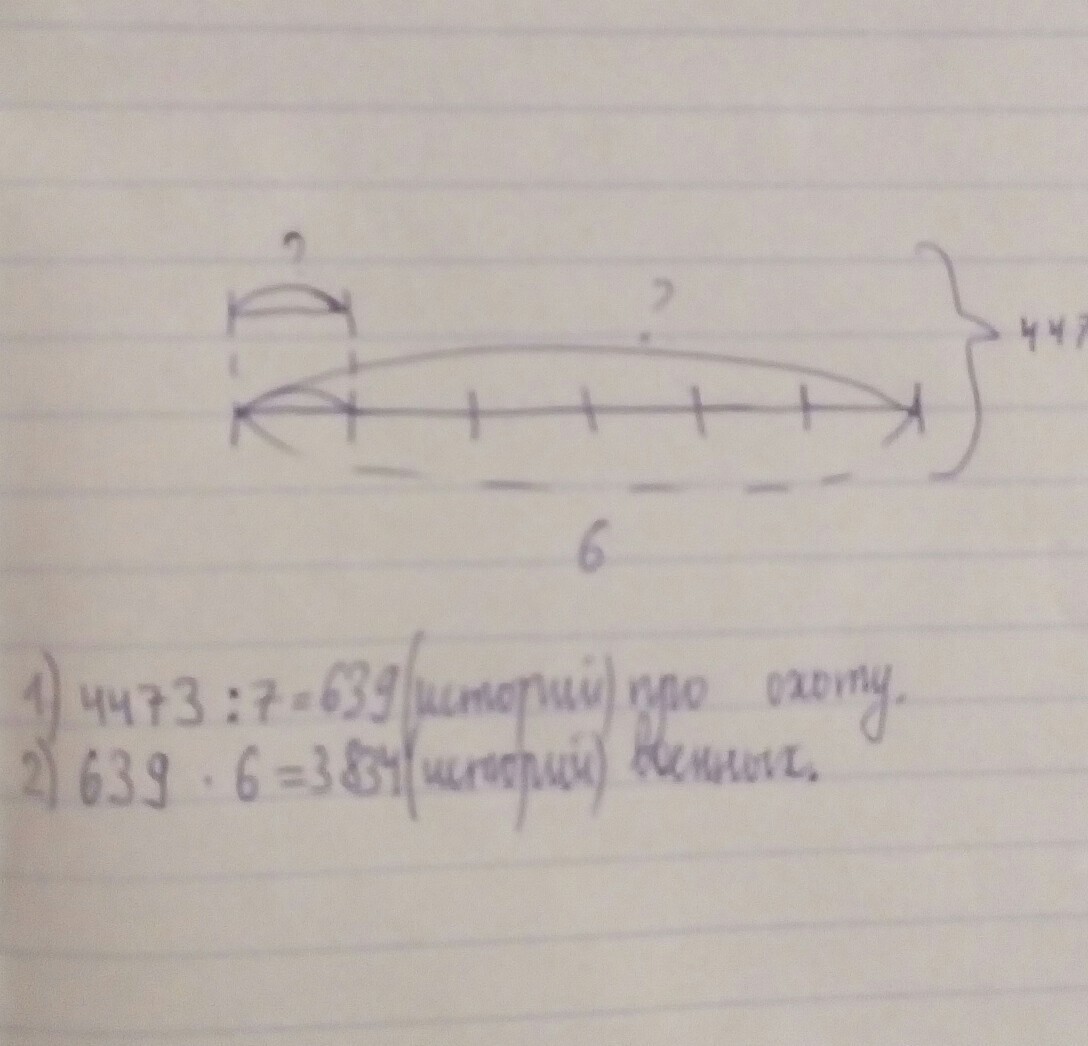 ?
?
447
6
1) 4473 : 7 = 639 (историй) про охоту.
2) 639 · 6 = 3834 (историй) военных.